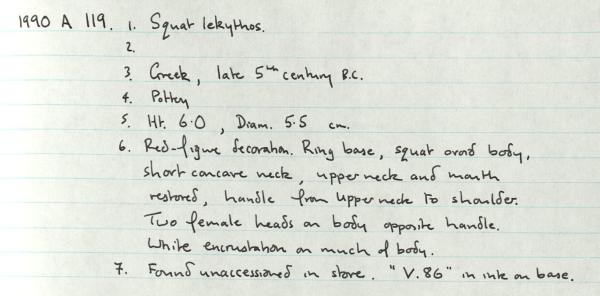 1990 A 119. 1. Squat lekythos.
2.
3. Greek, late 5th century B.C.
4. Pottery
5. Ht. 6.0, Diam. 5.5 cm.
6. Red-figure decoration. Ring base, squat ovoid body,
short concave neck, upper neck and mouth
restored, handle from upper neck to shoulder.
Two female heads on body opposite handle.
White encrustation on much of body.
7. Found unaccessioned in store. "V.86" in ink on base.